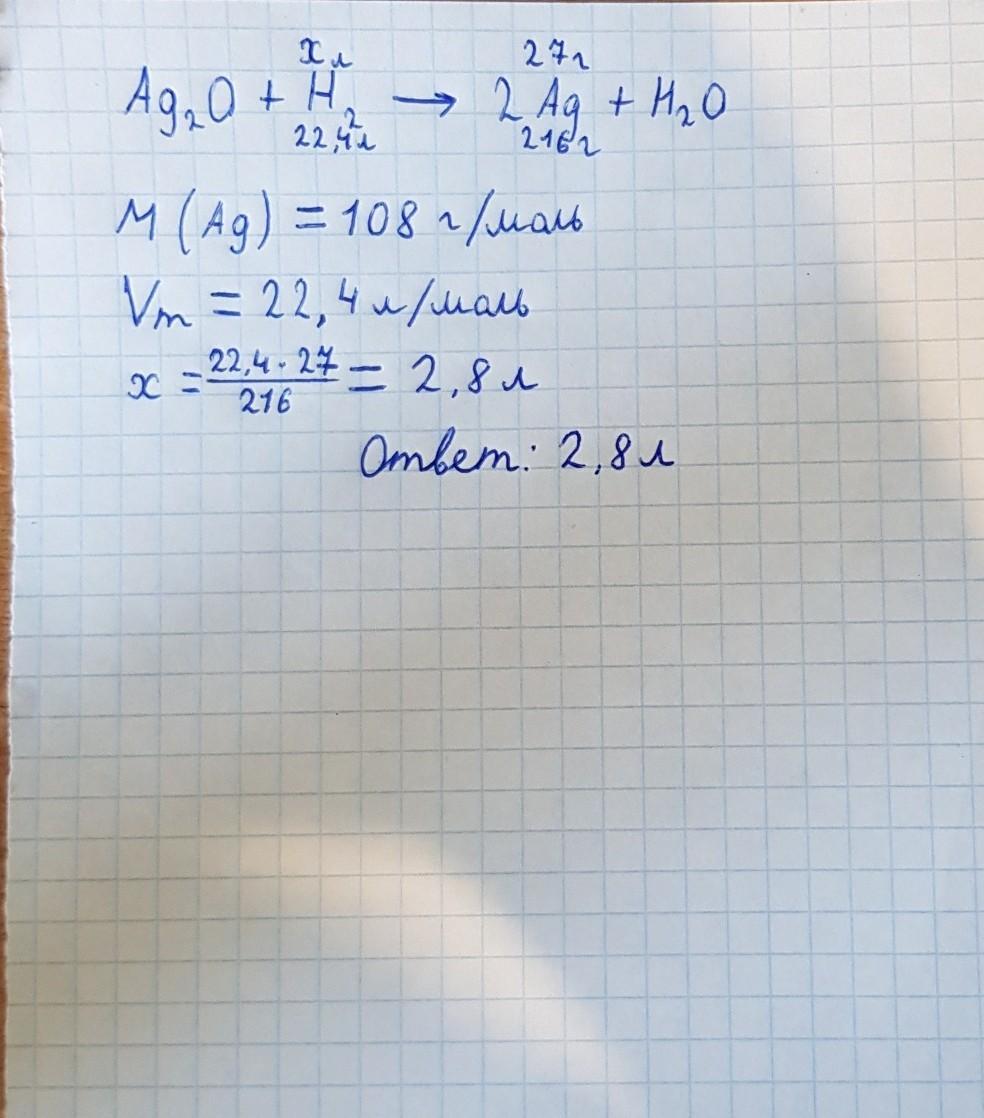 х л 27 г
Ag₂O + H₂ → 2 Ag + H₂O
22,4 л 216 г
M (Ag) = 108 г/моль
Vm = 22,4 л/моль
x = 22,4 · 27 / 216 = 2,8 л
Ответ: 2,8 л